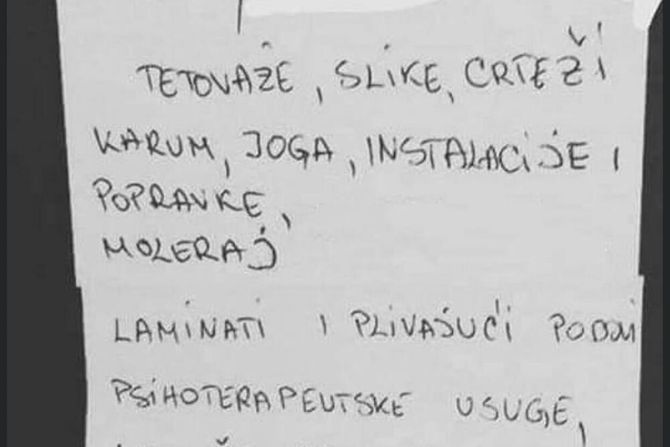 TETOVAŽE, SLIKE, CRTEŽI
KARUM, JOGA, INSTALACIJE I
POPRAVKE,
MOLERAJ
LAMINATI I PLIVAJUĆI PODOVI
PSIHOTERAPEUTSKE USUGE,